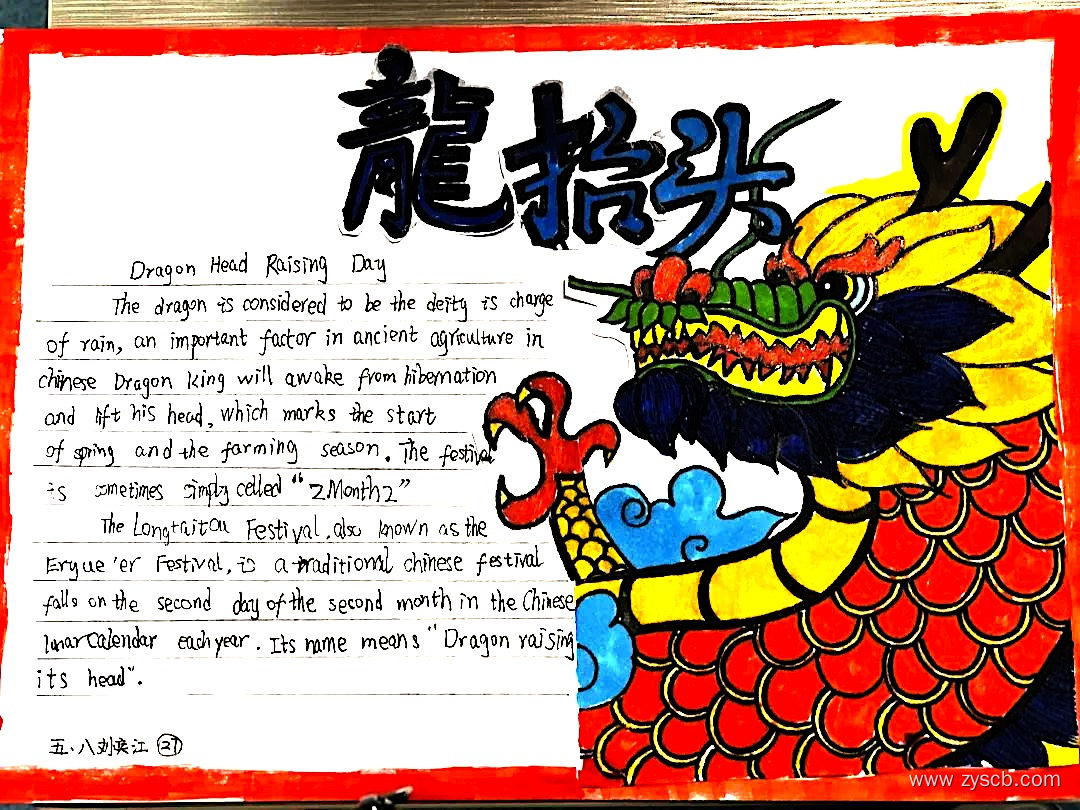 龍抬头
Dragon Head Raising Day
The dragon is considered to be the deity is charge
of rain, an important factor in ancient agriculture in
chinese Dragon king will awake from hibernation
and lift his head, which marks the start
of spring and the farming season. The festival
is sometimes simply celled "2Month2"
The Longtaitou Festival, also known as the
Eryue'er Festival, is a traditional chinese festival
falls on the second day of the second month in the Chinese
lunar Calendar each year. Its name means "Dragon raising
its head".
五.八刘奕江 27
www.zyscb.com